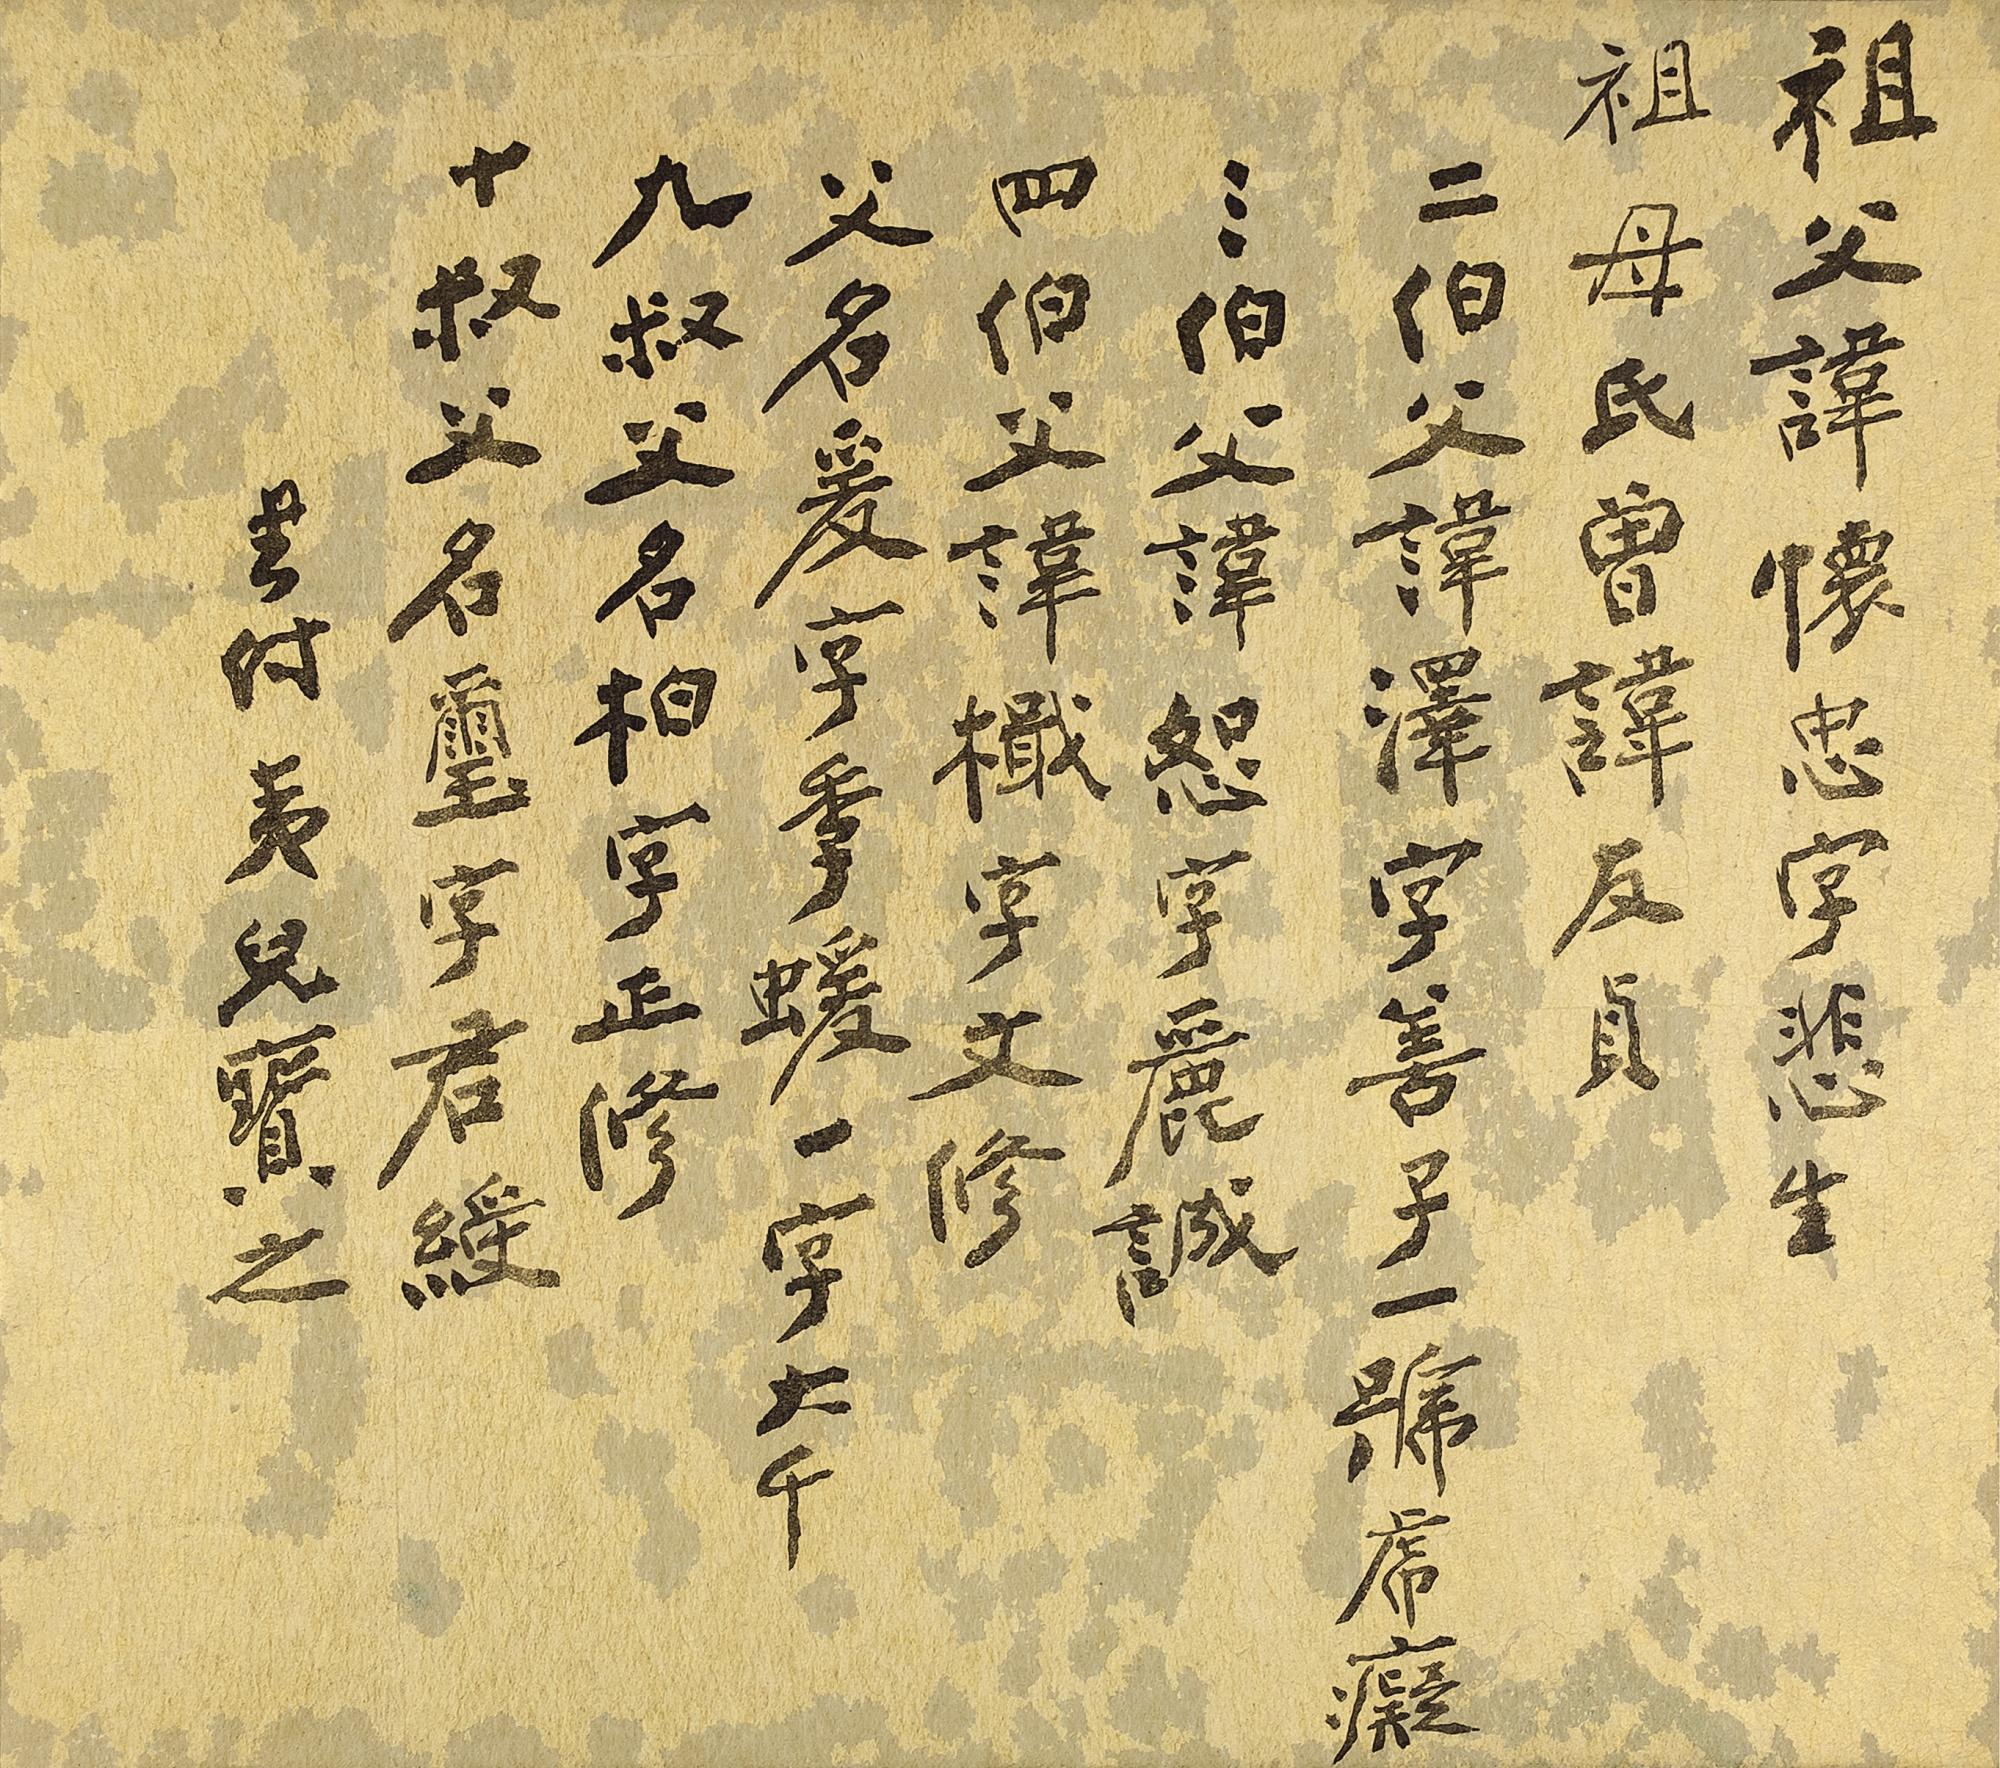 祖父諱懷忠字悲生
祖母氏曾諱友貞
二伯父諱澤字善子一號虎癡
三伯父諱恕字麗誠
四伯父諱檝字文修
父名爰字季蝯一字大千
九叔父名柏字正修
十叔父名璽字君綬
書付夷兒寶之